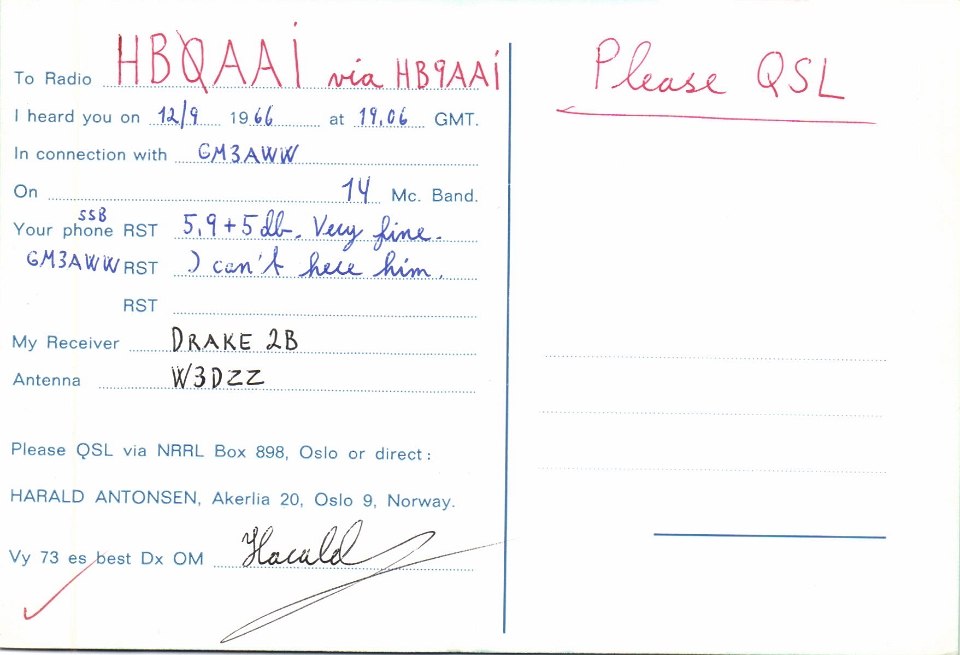 To Radio HBØAAi via HB9AAi
I heard you on 12/9 1966 at 19.06 GMT.
In connection with GM3AWW
On 14 Mc. Band.
SSB
Your phone RST 5,9+5db. Very fine.
GM3AWW RST I can't here him.
RST
My Receiver DRAKE 2B
Antenna W3DZZ
Please QSL via NRRL Box 898, Oslo or direct:
HARALD ANTONSEN, Akerlia 20, Oslo 9, Norway.
Vy 73 es best Dx OM Harald
Please QSL